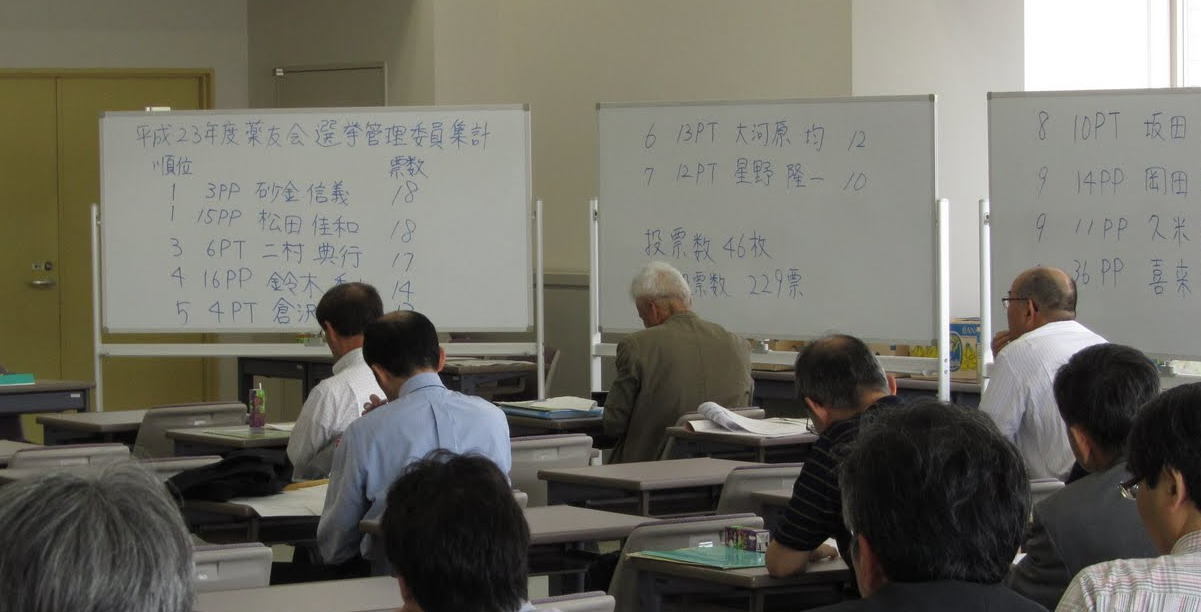 平成23年度薬友会 選挙管理委員集計
順位 票数
1 3PP 砂金 信義 18
1 15PP 松田 佳和 18
3 6PT 二村 典行 17
4 16PP 鈴木 14
5 4PT 倉沢
6 13PT 大河原 均 12
7 12PT 星野 隆一 10
投票数 46枚
票数 229票
8 10PT 坂田
9 14PP 岡田
9 11PP 久米
36PP 喜来